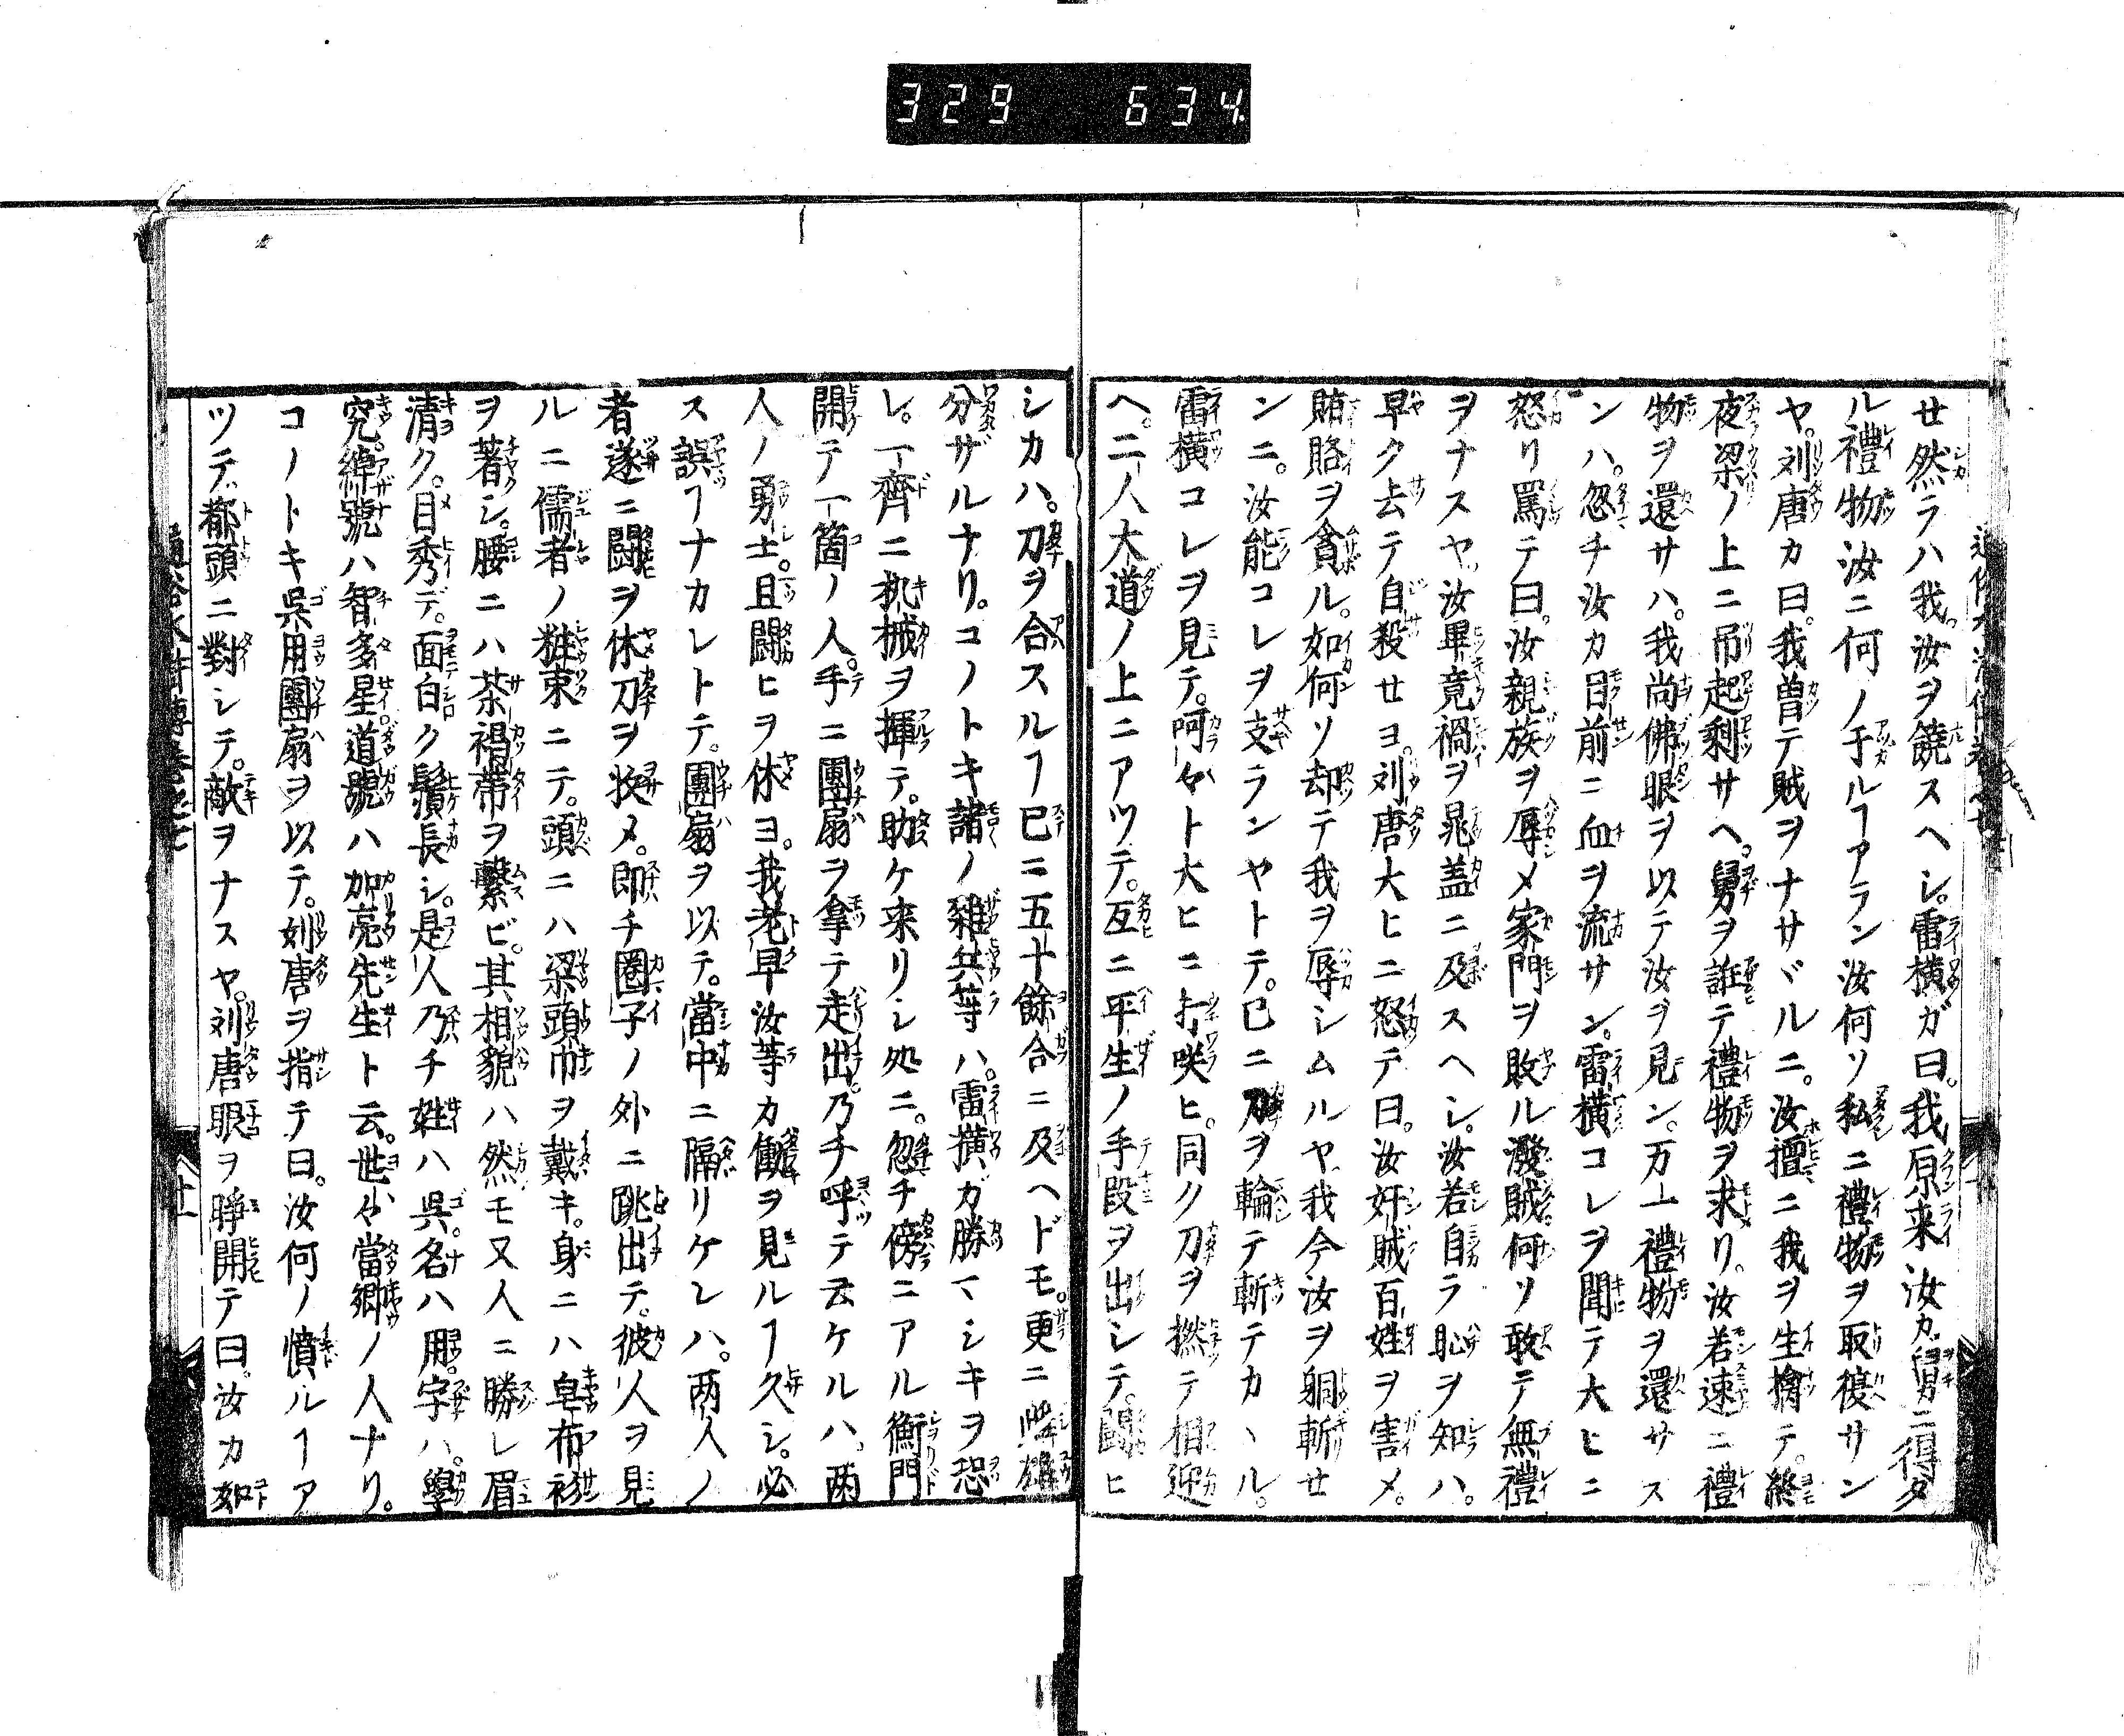 329 634
セ然ラハ我。汝ヲ饒スヘシ。雷横ガ曰。我原来汝カ舅ニ得タ
ル禮物汝ニ何ノ干ルヿアラン汝何ソ私ニ禮物ヲ取復サン
ヤ。刘唐カ曰。我曽テ賊ヲナサヾルニ。汝擅ニ我ヲ生擒テ。終
夜梁ノ上ニ吊起剰サヘ。舅ヲ誑テ禮物ヲ求リ。汝若速ニ禮
物ヲ還サハ。我尚佛眼ヲ以テ汝ヲ見ン。万一禮物ヲ還サス
ンハ。忽チ汝カ目前ニ血ヲ流サン。雷横コレヲ聞テ大ヒニ
怒リ罵テ曰。汝親族ヲ辱メ家門ヲ敗ル潑賊何ソ敢テ無禮
ヲナスヤ。汝畢竟禍ヲ晁盖ニ及スヘシ。汝若自ラ恥ヲ知ハ。
早ク去テ自殺セヨ。刘唐大ヒニ怒テ曰。汝奸賊百姓ヲ害メ。
賄賂ヲ貪ル。如何ソ却テ我ヲ辱シムルヤ我今汝ヲ胴斬セ
ンニ。汝能コレヲ支ランヤトテ。已ニ刀ヲ輪テ斬テカヽル。
雷横コレヲ見テ。呵々ト大ヒニ打咲ヒ。同ク刀ヲ撚テ相迎
ヘ。二人大道ノ上ニアツテ。互ニ平生ノ手段ヲ出シテ。闘ヒ
シカハ。刀ヲ合スルヿ已ニ五十餘合ニ及ヘドモ。更ニ雌雄
分ザルナリ。コノトキ諸ノ雜兵等ハ。雷横ガ勝マシキヲ恐
レ。一齊ニ机械ヲ揮テ。助ケ来リシ処ニ。忽チ傍ニアル衡門
開テ一箇ノ人。手ニ團扇ヲ拿テ走出。乃チ呼テ云ケルハ。両
人ノ勇士。且闘ヒヲ休ヨ。我老早汝等カ働ヲ見ルヿ久シ。必
ス誤ヿナカレトテ。團扇ヲ以テ。當中ニ隔リケレハ。两人ノ
者遂ニ闘ヲ休刀ヲ㧱メ。即チ圏子ノ外ニ跳出テ。彼人ヲ見
ルニ儒者ノ粧束ニテ。頭ニハ梁頭巾ヲ戴キ。身ニハ皂布衫
ヲ著シ。腰ニハ茶褐帯ヲ繫ビ。其相貌ハ然モ又人ニ勝レ眉
清ク。目秀デ。面白ク鬚長シ。是人乃チ姓ハ呉。名ハ用。字ハ。學
究。綽號ハ智多星。道號ハ加亮先生ト云。世々當郷ノ人ナリ。
コノトキ呉用團扇ヲ以テ。刘唐ヲ指テ曰。汝何ノ憤ルヿア
ツテ。都頭ニ對シテ。敵ヲナスヤ。刘唐眼ヲ睜開テ曰。汝カ如